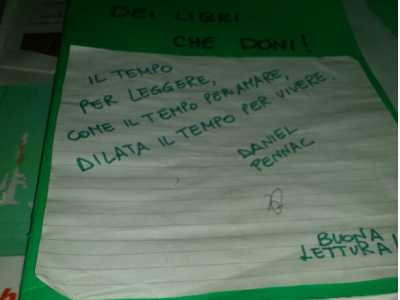 DEI LIBRI
CHE DONI!
IL TEMPO
PER LEGGERE,
COME IL TEMPO PER AMARE,
DILATA IL TEMPO PER VIVERE.
DANIEL
PENNAC
BUONA
LETTURA!